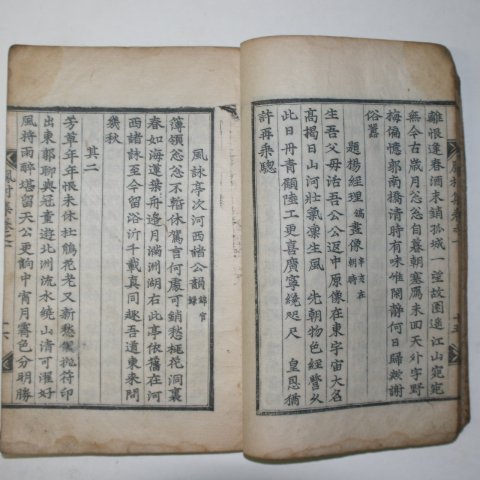 離恨逢春酒未銷孤城一望故園遙江山寂寂
無今古歲月忽忽自暮朝塞鴈未回天外字野
梅偏憶郭南橋淸時有味唯閒靜何日歸歟謝
俗囂
題楊經理鎬畫像辛亥在朝時
生吾父母活吾公公返中原像在東宇宙大名
高揭日山河壯氣凜生風先朝物色經營久
此日丹靑顧陸工更喜廣寧繞咫尺皇恩猶
許再乘驄
風詠亭次河西諸公韻錦官錄
簿領忽忽不暫休駕言何處可銷愁桃花洞裏
春如海蓮葉舟邊月滿洲湖右此亭依舊在河
西諸詠至今留浴沂千載眞同趣吾道東來問
幾秋
其二
芳草年年恨未休杜鵑花老又新愁罷抛符印
出東郭聊與冠童遊北洲流水繞山淸可濯好
風將雨醉堪留天公更餉中宵月霽色分明勝